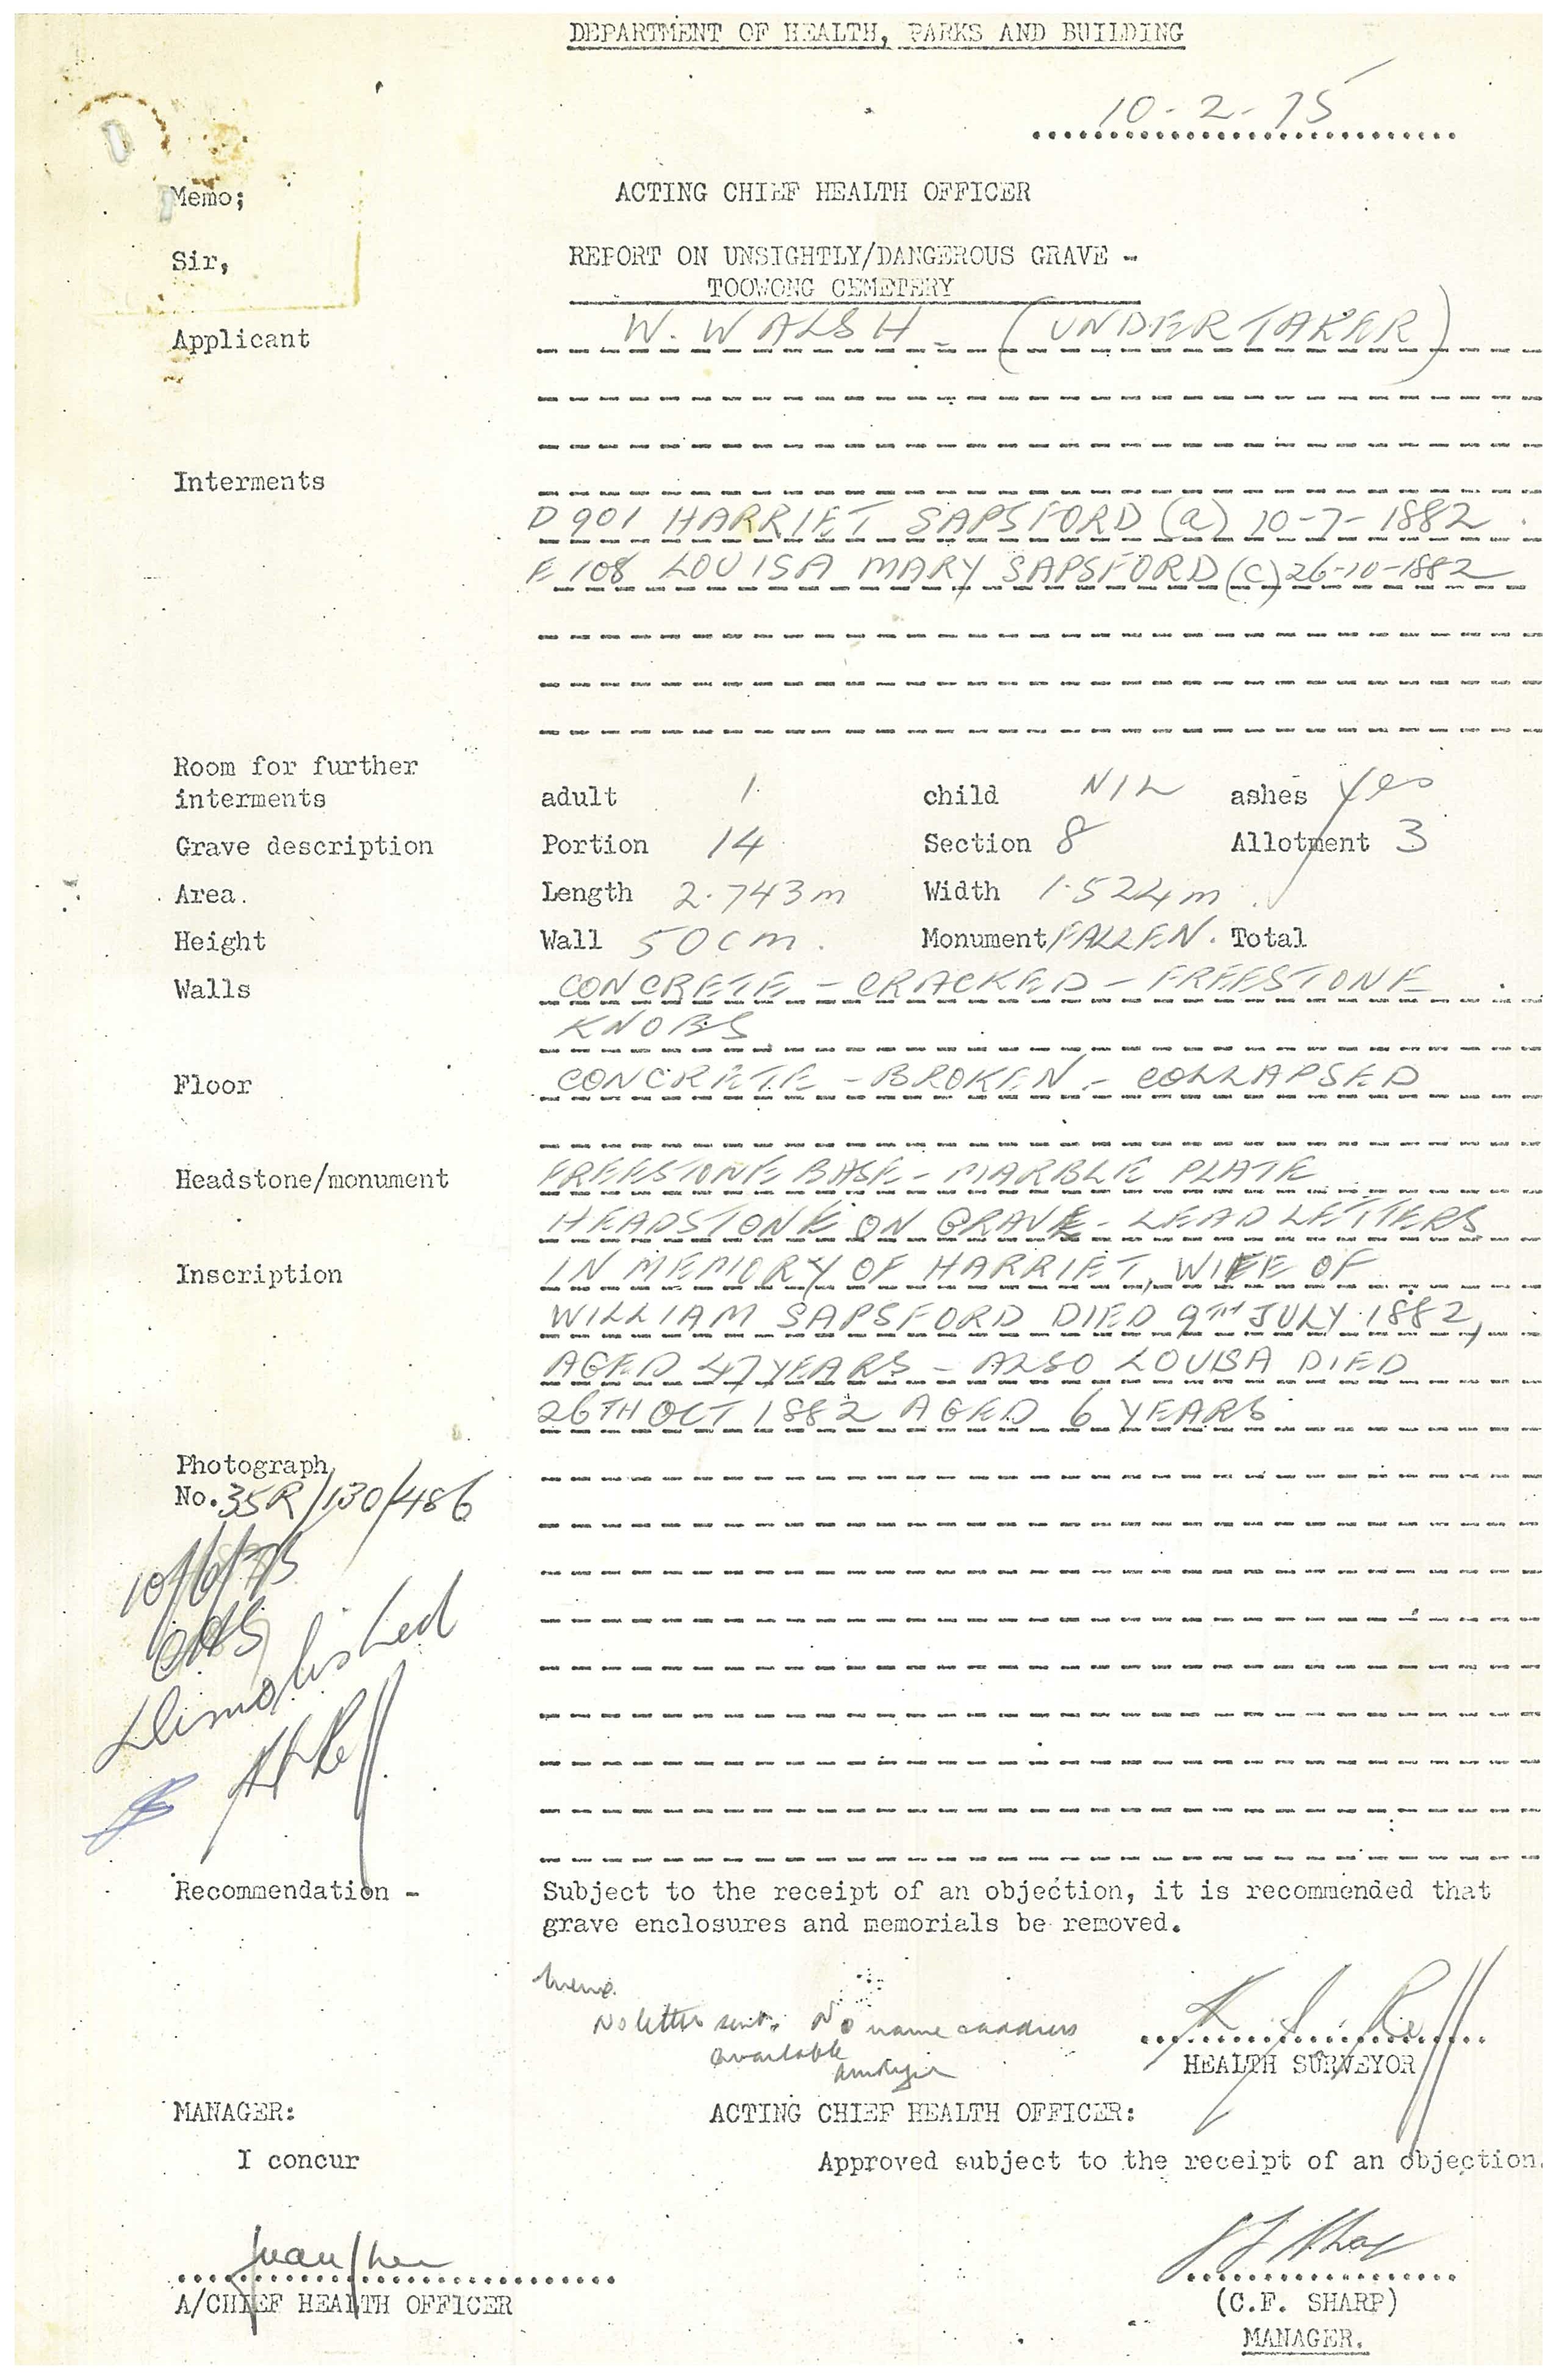 DEPARTMENT OF HEALTH, PARKS AND BUILDING
10-2-75
Memo; ACTING CHIEF HEALTH OFFICER
Sir, REPORT ON UNSIGHTLY/DANGEROUS GRAVE -
TOOWONG CEMETERY
Applicant W. WALSH - (UNDERTAKER)
Interments
D901 HARRIET SAPSFORD (a) 10-7-1882
E108 LOUISA MARY SAPSFORD (C) 26-10-1882
Room for further
interments adult 1 child NIL ashes yes
Grave description Portion 14 Section 8 Allotment 3
Area. Length 2.743m Width 1.524m
Height Wall 50cm. Monument FALLEN. Total
Walls CONCRETE - CRACKED - FREESTONE
KNOBS
Floor CONCRETE - BROKEN - COLLAPSED
Headstone/monument FREESTONE BASE - MARBLE PLATE
HEADSTONE ON GRAVE - LEAD LETTERS
Inscription IN MEMORY OF HARRIET, WIFE OF
WILLIAM SAPSFORD DIED 9TH JULY 1882,
AGED 47 YEARS - ALSO LOUISA DIED
26TH OCT 1882 AGED 6 YEARS
Photograph
No. 35R/130/486
10/6/75
Dimolished
Recommendation - Subject to the receipt of an objection, it is recommended that
grave enclosures and memorials be removed.
Memo.
No letter sent. No name & address
available
HEALTH SURVEYOR
MANAGER: ACTING CHIEF HEALTH OFFICER:
I concur Approved subject to the receipt of an objection.
A/CHIEF HEALTH OFFICER (C.F. SHARP)
MANAGER.